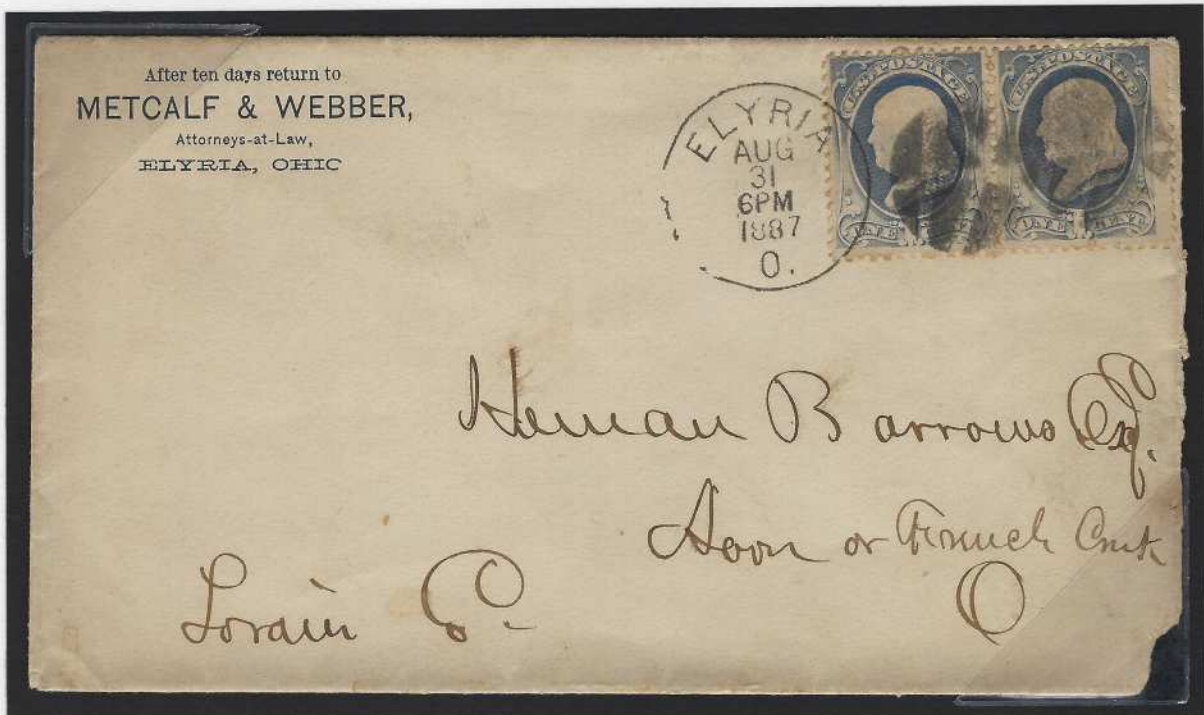 After ten days return to
METCALF & WEBBER,
Attorneys-at-Law,
ELYRIA, OHIO
ELYRIA
AUG
31
6PM
1887
O.
U.S. POSTAGE
U.S. POSTAGE
ONE CENT
Heman Barrows Esq.
Avon or French Creek
O
Lorain Co.